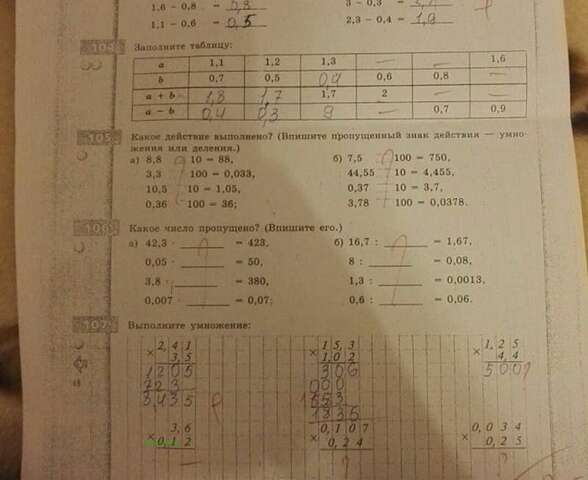 1,6 – 0,8 = 0,8 3 – 0,3 =
1,1 – 0,6 = 0,5 2,3 – 0,4 = 1,9
104 Заполните таблицу:
a 1,1 1,2 1,3 — — 1,6
b 0,7 0,5 0,4 0,6 0,8 —
a + b 1,8 1,7 1,7 2 — —
a – b 0,4 0,3 9 — 0,7 0,9
105 Какое действие выполнено? (Впишите пропущенный знак действия — умно-
жения или деления.)
а) 8,8 10 = 88, б) 7,5 100 = 750,
3,3 100 = 0,033, 44,55 10 = 4,455,
10,5 10 = 1,05, 0,37 10 = 3,7,
0,36 100 = 36; 3,78 100 = 0,0378.
106 Какое число пропущено? (Впишите его.)
а) 42,3 · ______ = 423, б) 16,7 : ______ = 1,67,
0,05 · ______ = 50, 8 : ______ = 0,08,
3,8 · ______ = 380, 1,3 : ______ = 0,0013,
0,007 · ______ = 0,07; 0,6 : ______ = 0,06.
107 Выполните умножение:
2,41 1,53 1,25
× 3,5 × 1,02 × 4,4
1205 306 500
723 000
3,435 153
1835
3,6 0,107 0,034
× 0,12 × 0,24 × 0,25